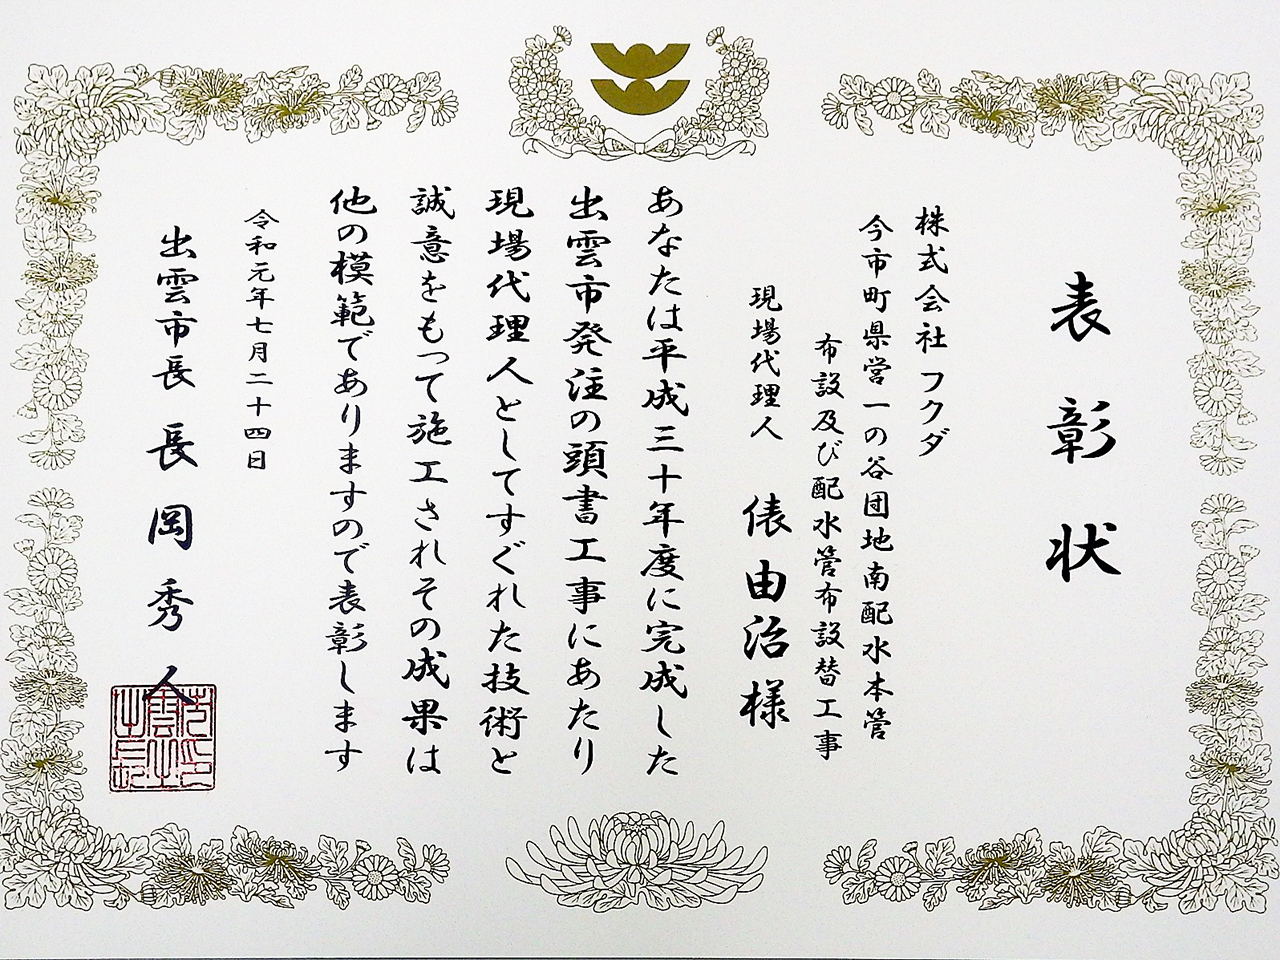 表彰状
株式会社フクダ
今市町県営一の谷団地南配水本管
布設及び配水管布設替工事
現場代理人 俵由治様
あなたは平成三十年度に完成した
出雲市発注の頭書工事にあたり
現場代理人としてすぐれた技術と
誠意をもって施工されその成果は
他の模範でありますので表彰します
令和元年七月二十四日
出雲市長 長岡秀人